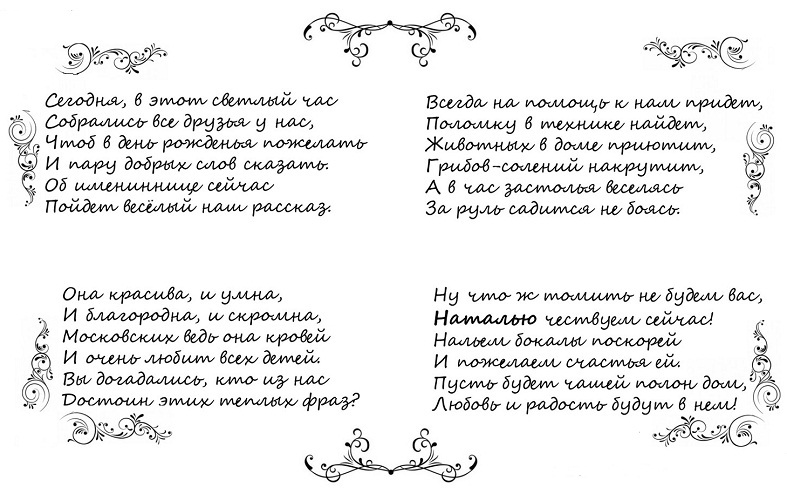 Сегодня, в этот светлый час
Собрались все друзья у нас,
Чтоб в день рожденья пожелать
И пару добрых слов сказать.
Об имениннице сейчас
Пойдет весёлый наш рассказ.
Она красива, и умна,
И благородна, и скромна,
Московских ведь она кровей
И очень любит всех детей.
Вы догадались, кто из нас
Достоин этих теплых фраз?
Всегда на помощь к нам придет,
Поломку в технике найдет,
Животных в доме приютит,
Грибов-солений накрутит,
А в час застолья веселясь
За руль садится не боясь.
Ну что ж томить не будем вас,
Наталью чествуем сейчас!
Нальем бокалы поскорей
И пожелаем счастья ей.
Пусть будет чашей полон дом,
Любовь и радость будут в нем!